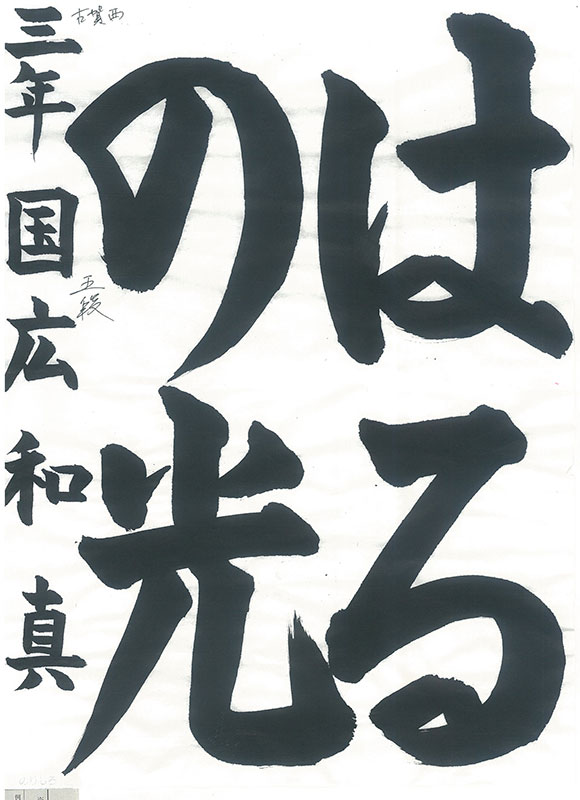 はる
の光
三年 国広 和真
古賀西
五段